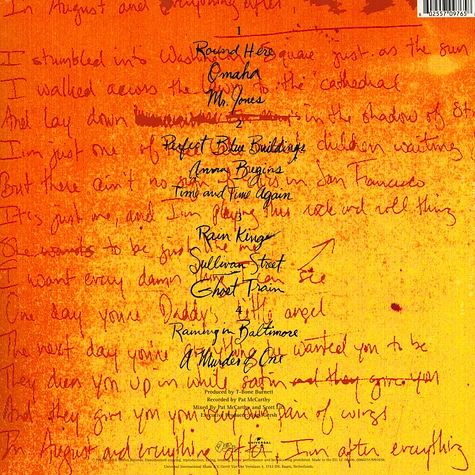 In August and everything after
6 02557 09765
1
Round Here
I stumbled into Washington Square just as the sun
Omaha
I walked across the to the cathedral
Mr. Jones
And lay down in the shadow of St
2
Perfect Blue Buildings
I'm just one of children waiting
Anna Begins
But there ain't no in San Francisco
Time and Time Again
It's just me, and I'm playing this rock and roll thing
3
Rain King
She wants to be just like me
Sullivan Street
I want every damn thing I can see
Ghost Train
One day you're Daddy's little angel
4
Raining in Baltimore
The next day you're wanted you to be
A Murder of One
They dress you up in white satin and they give you
Produced by T-Bone Burnett
Recorded by Pat McCarthy
And they give you your own pair of wings
Mixed by Pat McCarthy and Scott
In August and everything after, I'm after everything
UNIVERSAL